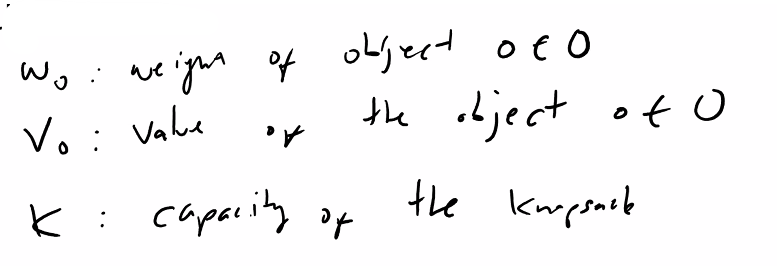 w₀ : weight of object o ∈ O
V₀ : Value of the object o ∈ O
K : capacity of the knapsack